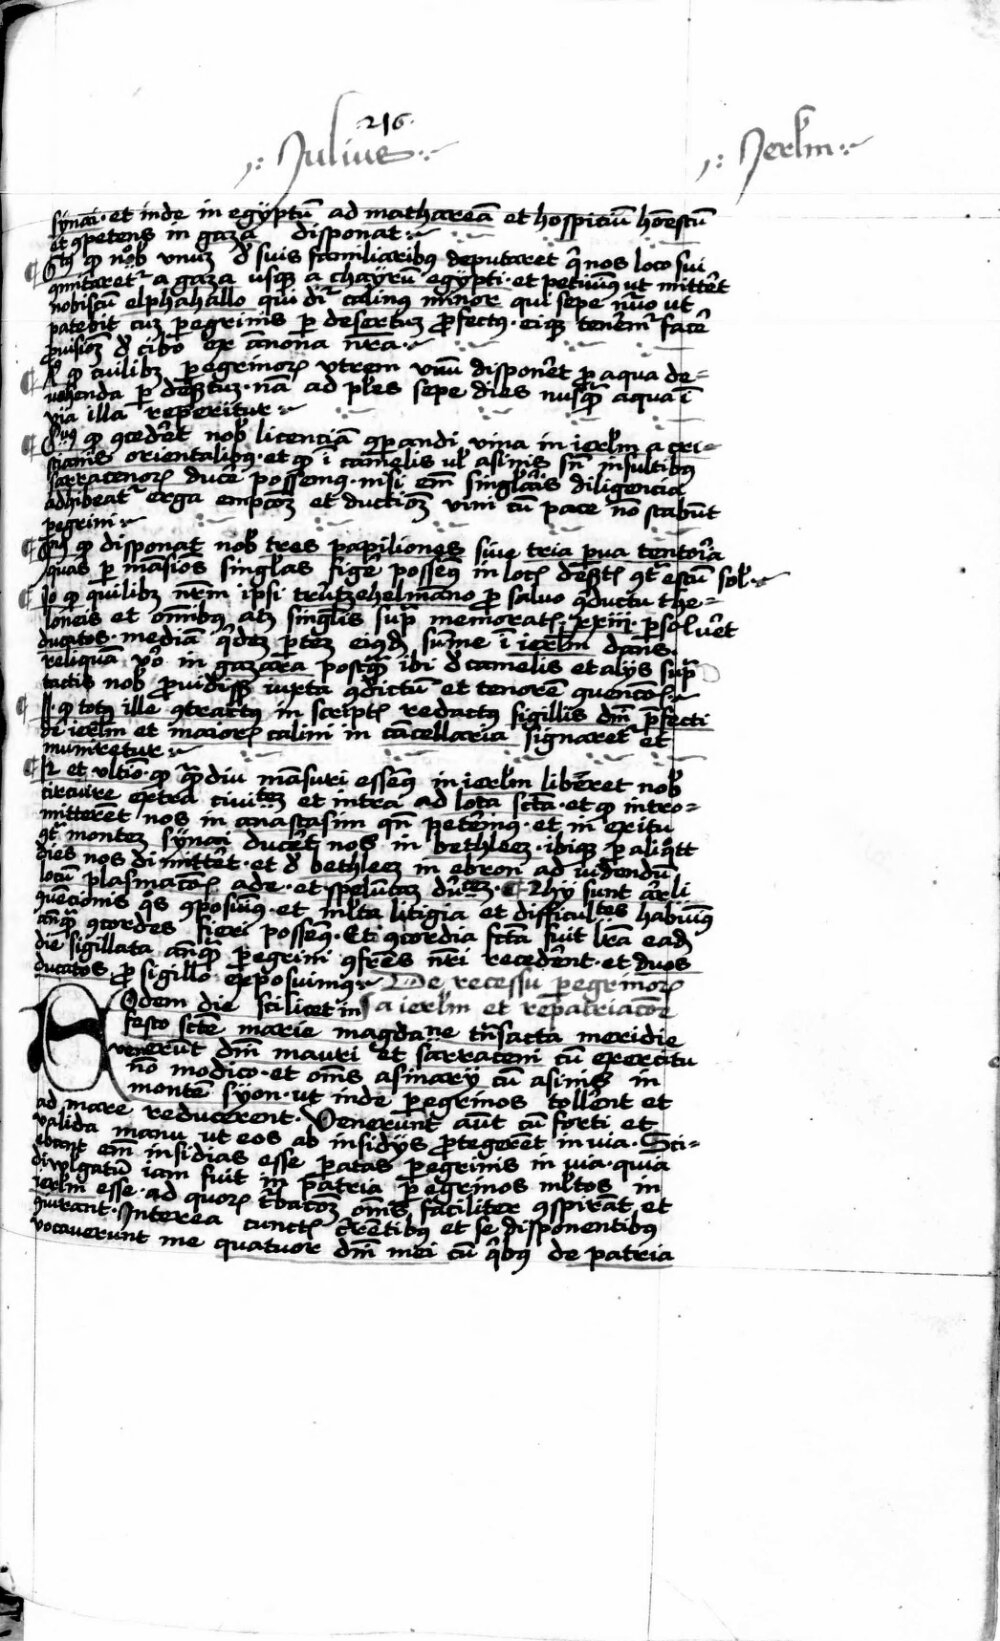 216.
Julius
Jerlm
synai · et inde in egÿptū ad mathareā et hospiciū honestū
et 9petens in gaza disponat
qp nob vnuz d suis familiaribq deputaret q nos loco sui
9mitaret a gaza usqz a chayrū egÿpti · et petiuimq ut mittēt
nobiscū elphahallo qui dr calinq minor qui sepe nūo ut
patebit cuz pegrinis p desertuz pfectq · eiqz tenem facē
puisioz d cibo ex annona nra
qp cuilibz pegrinoz vtrem vnū disponēt p aqua de=
vehenda p desertuz · nā ad ples sepe dies nusqz aqua ī
via illa reperitur
qp 9cedēt nob licenciā 9pandi vina in ierlm a cris=
tianis orientalibq · et qp i camelis ul asinis sn insultibq
sarracenoz ducē possemq · nisi em singlāis diligencia
adhibeat erga empcoz et ductioz vini cū pace no stabūt
pegrini
qp disponat nob tres papiliones siue tria pua tentoria
quas p māsioes singlas figē possemq in locz desertz
qp quilibz nrm ipsi trutzehelmano p saluo 9ductu the=
loneis et omnibq aliis singlis sup memoratz xxiij psoluēt
ducatos · mediā qdez ptez eiqd sume i ierlm dans
reliquā vo in gazara postqz ibi d camelis et alijs sup
tactis nob puidiss iuxta 9dictum et tenorē
qp totq ille 9tractq in scriptz redactq sigillis dm pfecti
de ierlm et maioz calini in cancellaria signaret et
muniretur
et vltio · qp qdiu māsuri essemq in ierlm liberet nob
circuire extra ciuitez et intra ad loca scta · et qp intro=
mitterēt nos in anastasim qn petēmq · et in exitu
9t montez sÿnai ducēt nos in bethleez · ibiqz p aliqtt
dies nos dimittēt · et d bethleez in ebron ad videndū
locū plasmacoz ade · et speluncaz dupcez · Hij sunt arli
9uencionis qs 9posuimq · et mlta litigia et difficultes habuimq
anqz 9cordes fieri possemq · Et 9cordia fcta fuit lra eadz
die sigillata anqz pegrini 9fres nri recedēnt · et duos
ducatos p sigillo exposuimq De recessu pegrinoz
Eodem die scilicet in a ierlm et repatriacoe
festo scte marie magdane tnsacta meridie
venerūt dm mauri et sarraceni cū exercitu
no modico · et oms asinarÿ cū asinis in
montē sÿon · ut inde pegrinos tollēnt et
ad mare reducerent · Venerunt aut cū forti et
valida manu ut eos ab insidÿs ptegerēt in via · Sci=
ebant em insidias esse patas pegrinis in via · quia
diuulgatū iam fuit in patria pegrinos mltos in
ierlm esse · ad quoz tbacoz oms faciliter 9spirāt et
9iurant · Interea cunctz crentibq et se disponentibq
vocauerunt me quatuor dm mei cū qbq de patria